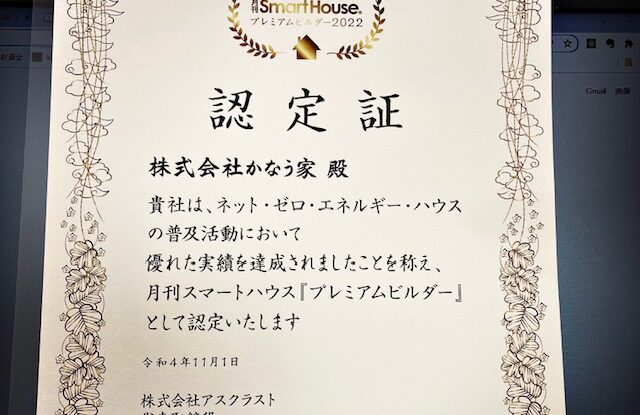 月刊 SmartHouse®
プレミアムビルダー2022
認定証
株式会社かなう家 殿
貴社は、ネット・ゼロ・エネルギー・ハウス
の普及活動において
優れた実績を達成されましたことを称え、
月刊スマートハウス『プレミアムビルダー』
として認定いたします
令和4年11月1日
株式会社アスクラスト
Gmail 画像